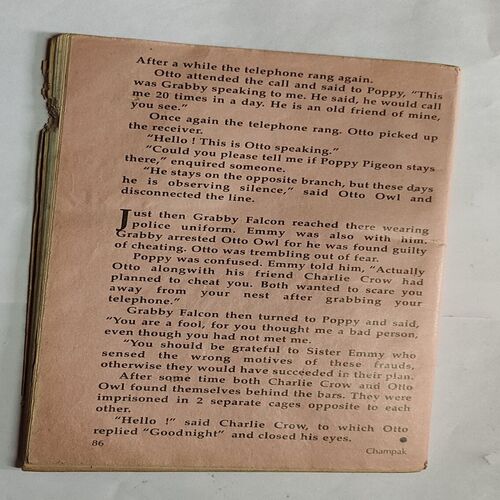 After a while the telephone rang again.
Otto attended the call and said to Poppy, "This
was Grabby speaking to me. He said, he would call
me 20 times in a day. He is an old friend of mine,
you see."
Once again the telephone rang. Otto picked up
the receiver.
"Hello ! This is Otto speaking."
"Could you please tell me if Poppy Pigeon stays
there," enquired someone.
"He stays on the opposite branch, but these days
he is observing silence," said Otto Owl and
disconnected the line.
Just then Grabby Falcon reached there wearing
police uniform. Emmy was also with him.
Grabby arrested Otto Owl for he was found guilty
of cheating. Otto was trembling out of fear.
Poppy was confused. Emmy told him, "Actually
Otto alongwith his friend Charlie Crow had
planned to cheat you. Both wanted to scare you
away from your nest after grabbing your
telephone."
Grabby Falcon then turned to Poppy and said,
"You are a fool, for you thought me a bad person,
even though you had not met me.
"You should be grateful to Sister Emmy who
sensed the wrong motives of these frauds,
otherwise they would have succeeded in their plan.
After some time both Charlie Crow and Otto
Owl found themselves behind the bars. They were
imprisoned in 2 separate cages opposite to each
other.
"Hello !" said Charlie Crow, to which Otto
replied "Goodnight" and closed his eyes.
86
Champak